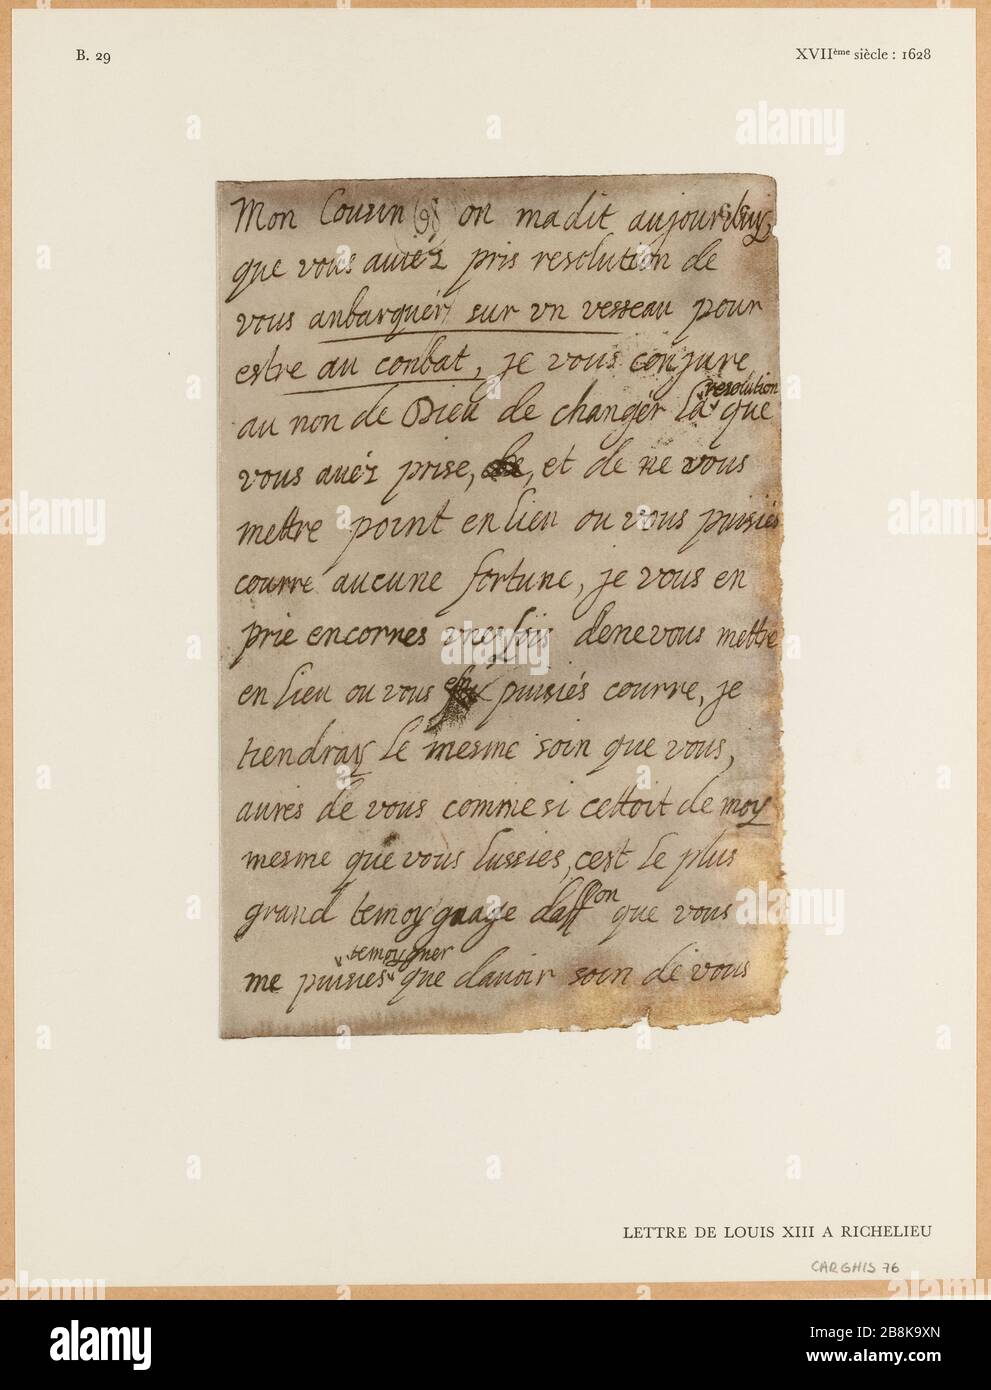 B. 29
XVIIème siècle : 1628
Mon Cousin on madit aujourdhuy,
que vous auiéz pris resolution de
vous anbarquér sur vn vesseau pour
estre au conbat, je vous conjure
au non de Dieu de changér la resolution que
vous auéz prise, et de ne vous
mettre point en lieu ou vous puisiés
courre aucune fortune, je vous en
prie encornes vnes fois denevous mettre
en lieu ou vous en puisiés courre, je
tiendray le mesme soin que vous,
aures de vous comme si cettoit de moy
mesme que vous lussies, cest le plus
grand temoygnage daffon que vous
me puisies temoygner que davoir soin de vous
LETTRE DE LOUIS XIII A RICHELIEU
CARGHIS 76
alamy
Image ID: 2B8K9XN
www.alamy.com